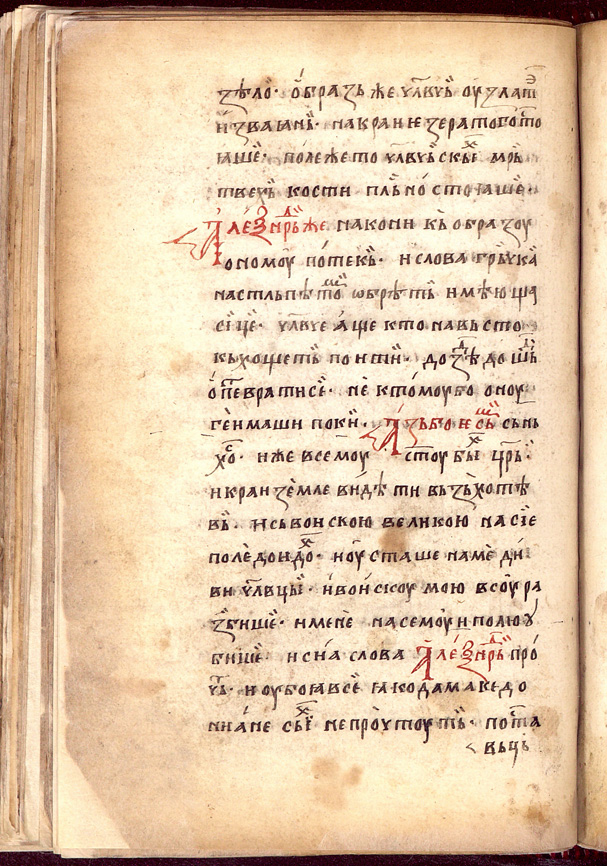 ѕѣло· ѡ҆бразь же чл҃вчь ѹ злат
и҆зваꙗнь· на краи езера того сто
ꙗше· поле же то чл҃вчьскыⷯ мрь
твехь кости пльно стоꙗше·
Але́ѯⷩ҇дрь же на кони кь образоу
ономоу потекь· и слова грьчка
на стльпѣ томь ѡбрѣть имѣюща
сице· чл҃вче а́ще кто на вьсто
кь хощеть поити· до зⷣѣ дошⷣь
ѡпеть врати се· не к томоу бо оноу
ге имаши поки· Азь бо есьмь сьнь
хоⷭ· иже всемоу стоу быⷯ цр҃ь·
и краи землѥ видѣти вьсьхотѣ
вь· и сь воискою великою на сїе
поле доидоⷯ· и оусташе на ме ди
ви чл҃вцы· и воискоу мою всоу ра
збише· и мене на семои полю оу
бише· и сиа слова Але́ѯⷩ҇дрь про
чть· и оубоꙗв се ꙗко да македо
ниане сыⷯ не прочтоуть· поста
вьць